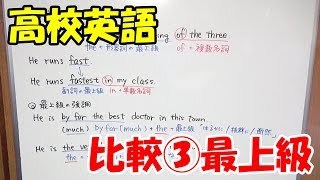 高校英語
ing of the three.
the + 形容詞の最上級 of + 複数名詞
He runs fast.
He runs fastest in my class.
副詞の最上級 in + 単数名詞
② 最上級の強調
He is by far the best doctor in this town.
(much) by far (much) + the + 最上級
He is the ve
the
比較③最上級